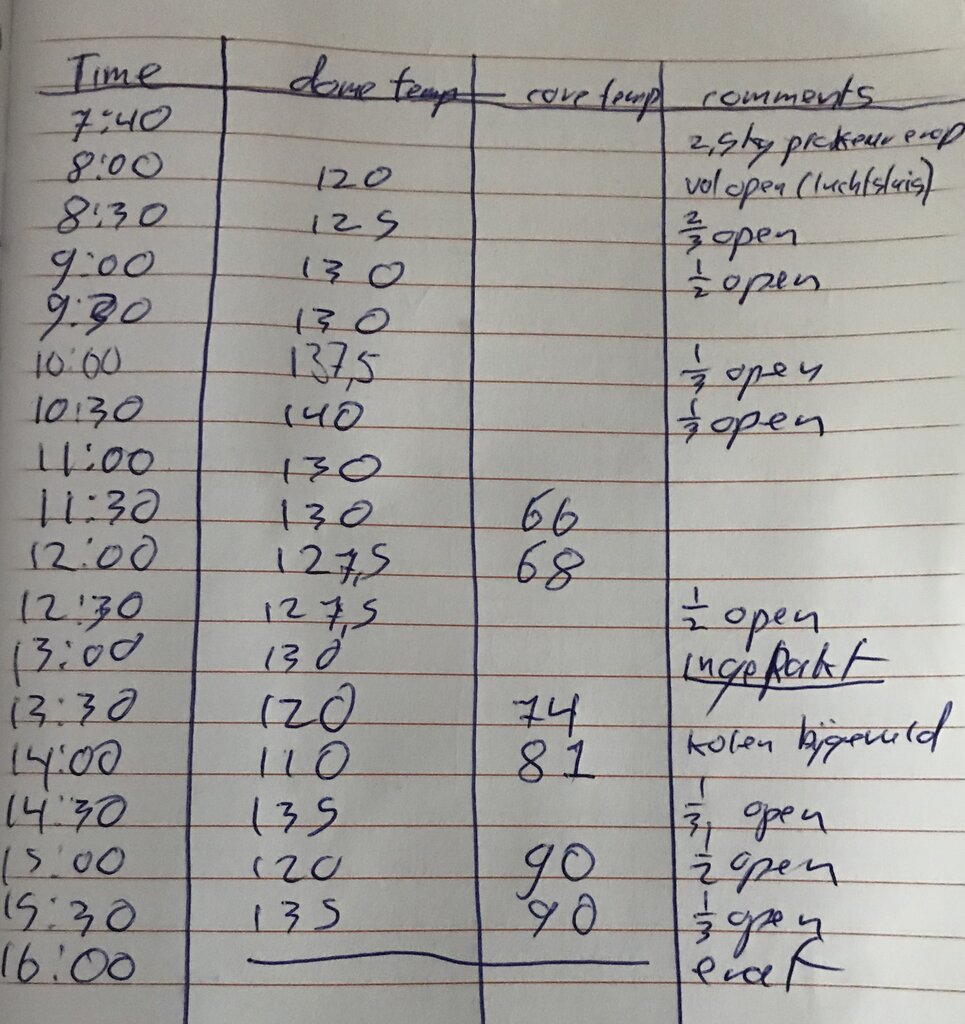 Time dome temp core temp comments
7:40 2,5kg procureur erop
8:00 120 vol open (luchtsluis)
8:30 125 2/3 open
9:00 130 1/2 open
9:30 130
10:00 137,5 1/3 open
10:30 140 1/3 open
11:00 130
11:30 130 66
12:00 127,5 68
12:30 127,5 1/2 open
13:00 130 ingepakt
13:30 120 74
14:00 110 81 kolen bijgevuld
14:30 135 1/3 open
15:00 120 90 1/2 open
15:30 135 90 1/3 open
16:00 eraf